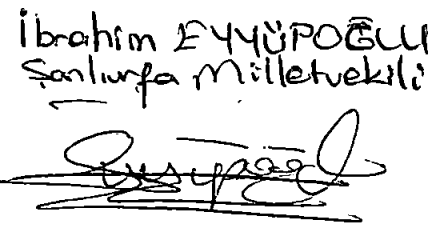 İbrahim EYYÜPOĞLU
Şanlıurfa Milletvekili